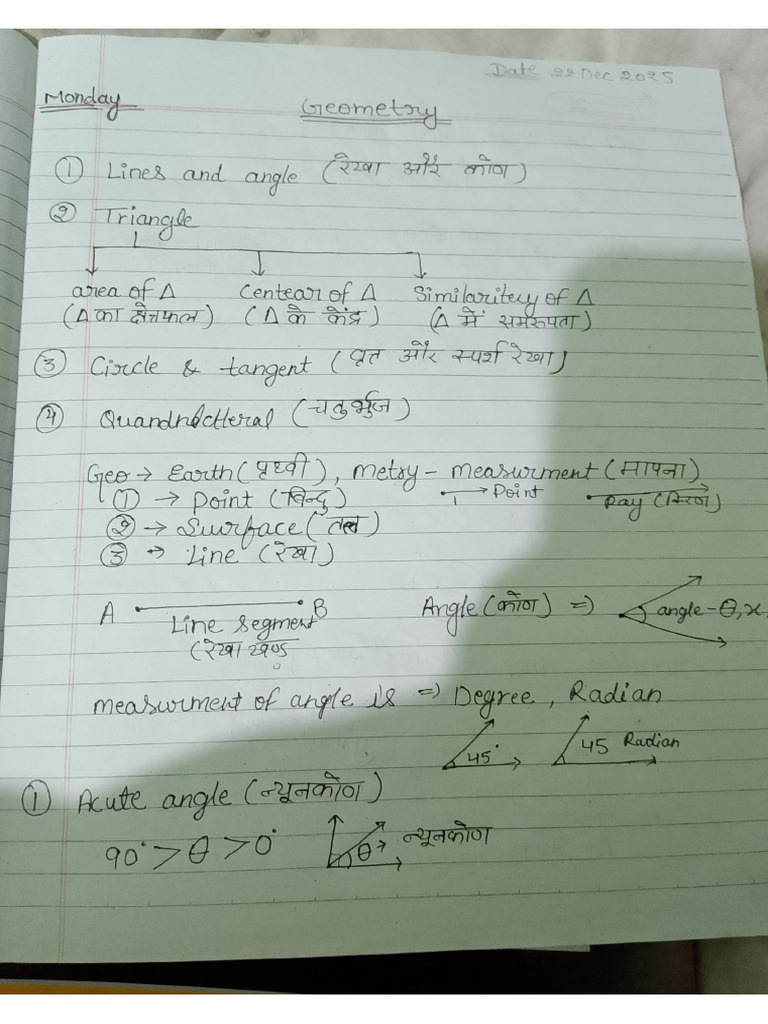 Date 22 Dec 2025
Monday
Geometry
① Lines and angle (रेखा और कोण)
② Triangle
area of Δ Centear of Δ Similaritey of Δ
(Δ का क्षेत्रफल) (Δ के केंद्र) (Δ में समरूपता)
③ Circle & tangent (वृत और स्पर्श रेखा)
④ (चतुर्भुज)
Geo → Earth (पृथ्वी), metry - measurment (मापना)
① → Point (बिन्दु) → Point Ray (किरण)
② → Surface (तल)
③ → Line (रेखा)
A B Angle (कोण) ⇒ angle - θ, x
Line segment
(रेखा खण्ड
measurment of angle is ⇒ Degree, Radian
45° 45 Radian
① Acute angle (न्यूनकोण)
90° > θ > 0° θ → न्यूनकोण